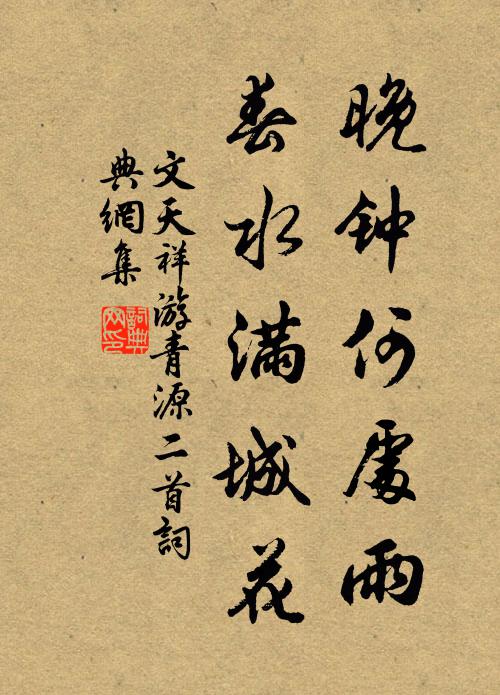 晚钟何處雨
春水满城花
文天祥游青源二首詞
典網集
詞典网印